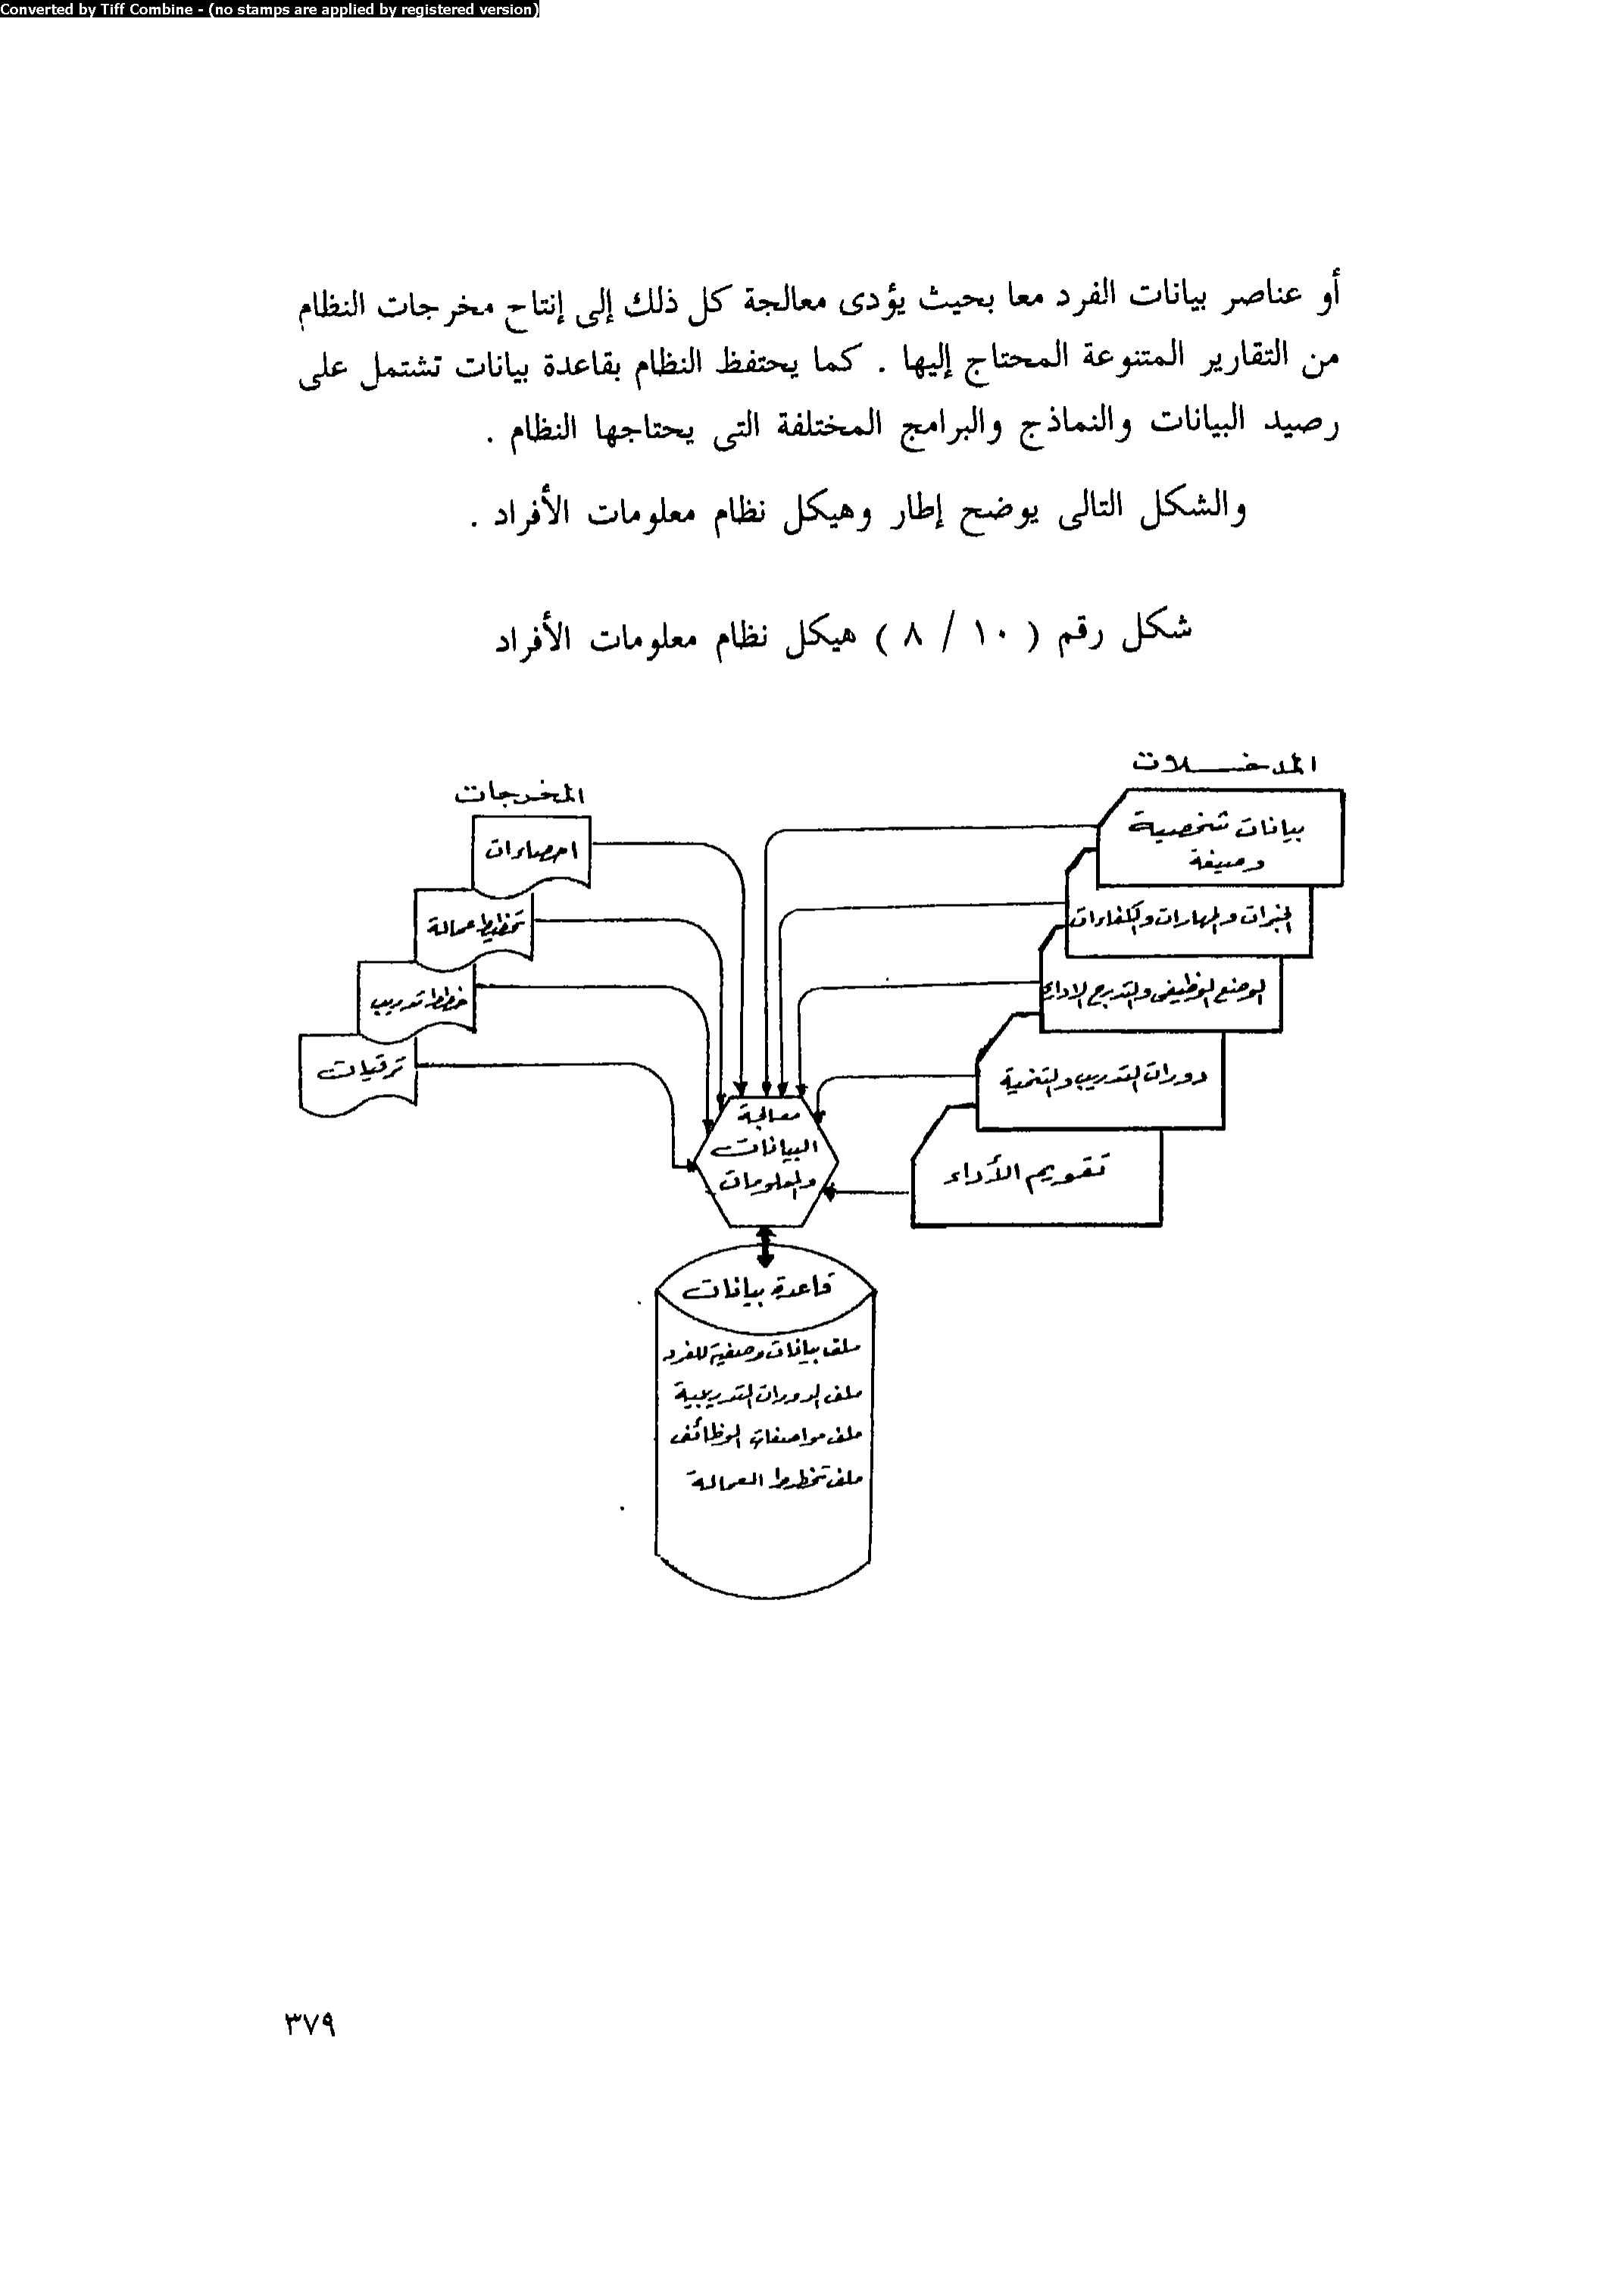 Converted by Tiff Combine - (no stamps are applied by registered version)
أو عناصر بيانات الفرد معا بحيث يؤدى معالجة كل ذلك إلى إنتاج مخرجات النظام
من التقارير المتنوعة المحتاج إليها . كما يحتفظ النظام بقاعدة بيانات تشتمل على
رصيد البيانات والنماذج والبرامج المختلفة التى يحتاجها النظام .
والشكل التالى يوضح إطار وهيكل نظام معلومات الأفراد .
شكل رقم ( ١٠ / ٨ ) هيكل نظام معلومات الأفراد
المدخلات
بيانات شخصية
وصيفة
الخبرات والمهارات والكفاءات
الوضع الوظيفى والتدرج الادارى
دورات التدريب والتنمية
تقويم الأداء
المخرجات
احصاءات
تخطيط عمالة
خطط تدريب
ترقيات
معالجة
البيانات
والمعلومات
قاعدة بيانات
ملف بيانات وصفية للفرد
ملف الدورات التدريبية
ملف مواصفات الوظائف
ملف تخطيط العمالة
٣٧٩